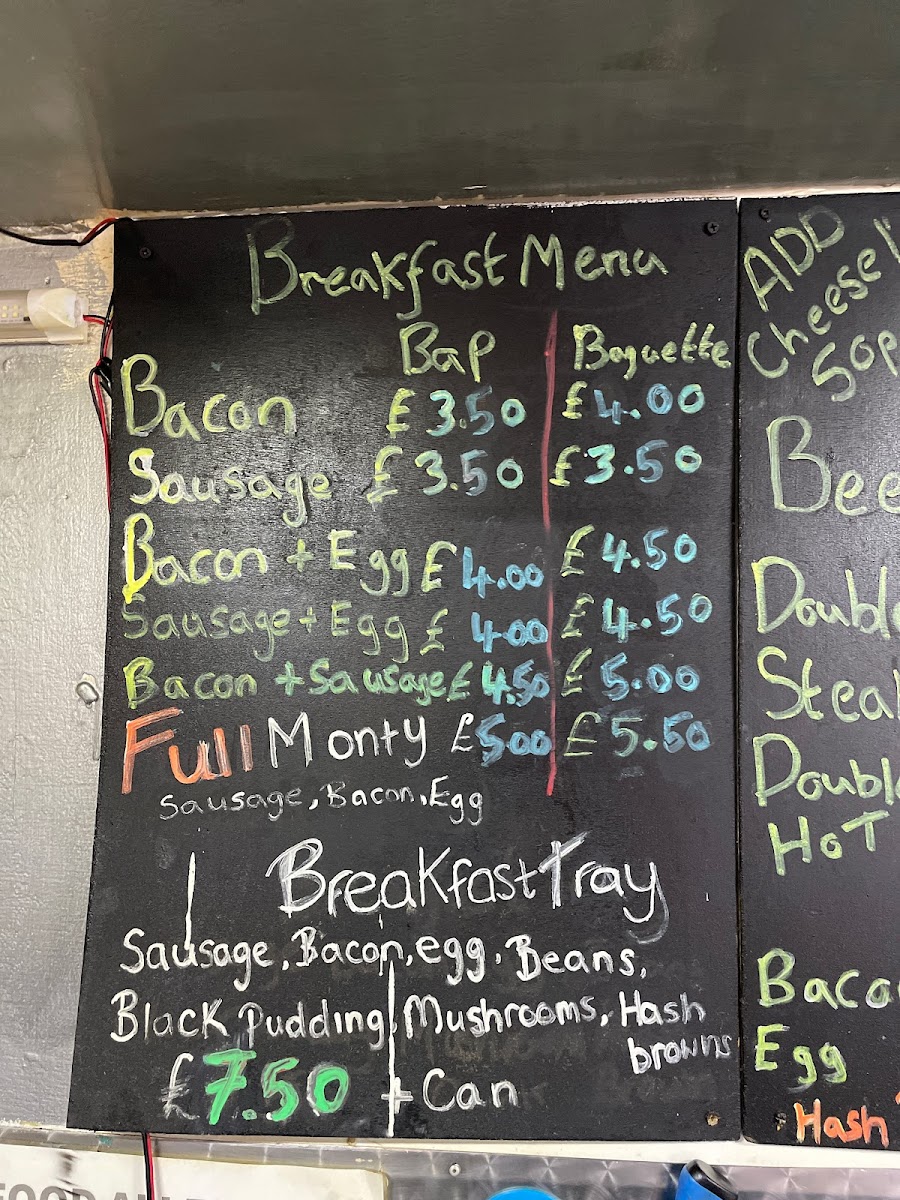 Breakfast Menu
Bap Baguette
Bacon £3.50 £4.00
Sausage £3.50 £3.50
Bacon + Egg £4.00 £4.50
Sausage + Egg £4.00 £4.50
Bacon + Sausage £4.50 £5.00
Full Monty £5.00 £5.50
Sausage, Bacon, Egg
Breakfast Tray
Sausage, Bacon, egg, Beans,
Black Pudding, Mushrooms, Hash
browns
£7.50 + Can
ADD
Cheese
50p
Bee
Double
Steak
Double
HOT
Bacon
Egg
Hash
FOOD